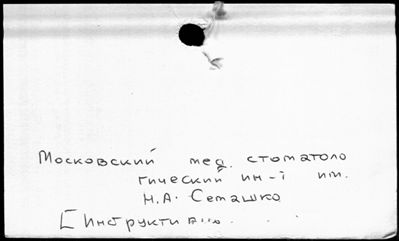 Московский мед. стоматоло
гический ин-т им.
Н.А. Семашко
[Инструктивно . . .